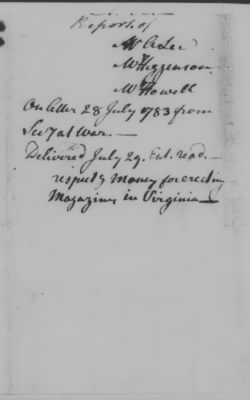 Report of
Mr A Lee
Mr Higgenson
Mr Howell
On letter 28 July 1783 from
Secy at War.—
Delivered July 29. Ent. read.—
respects Money for erecting
Magazines in Virginia—